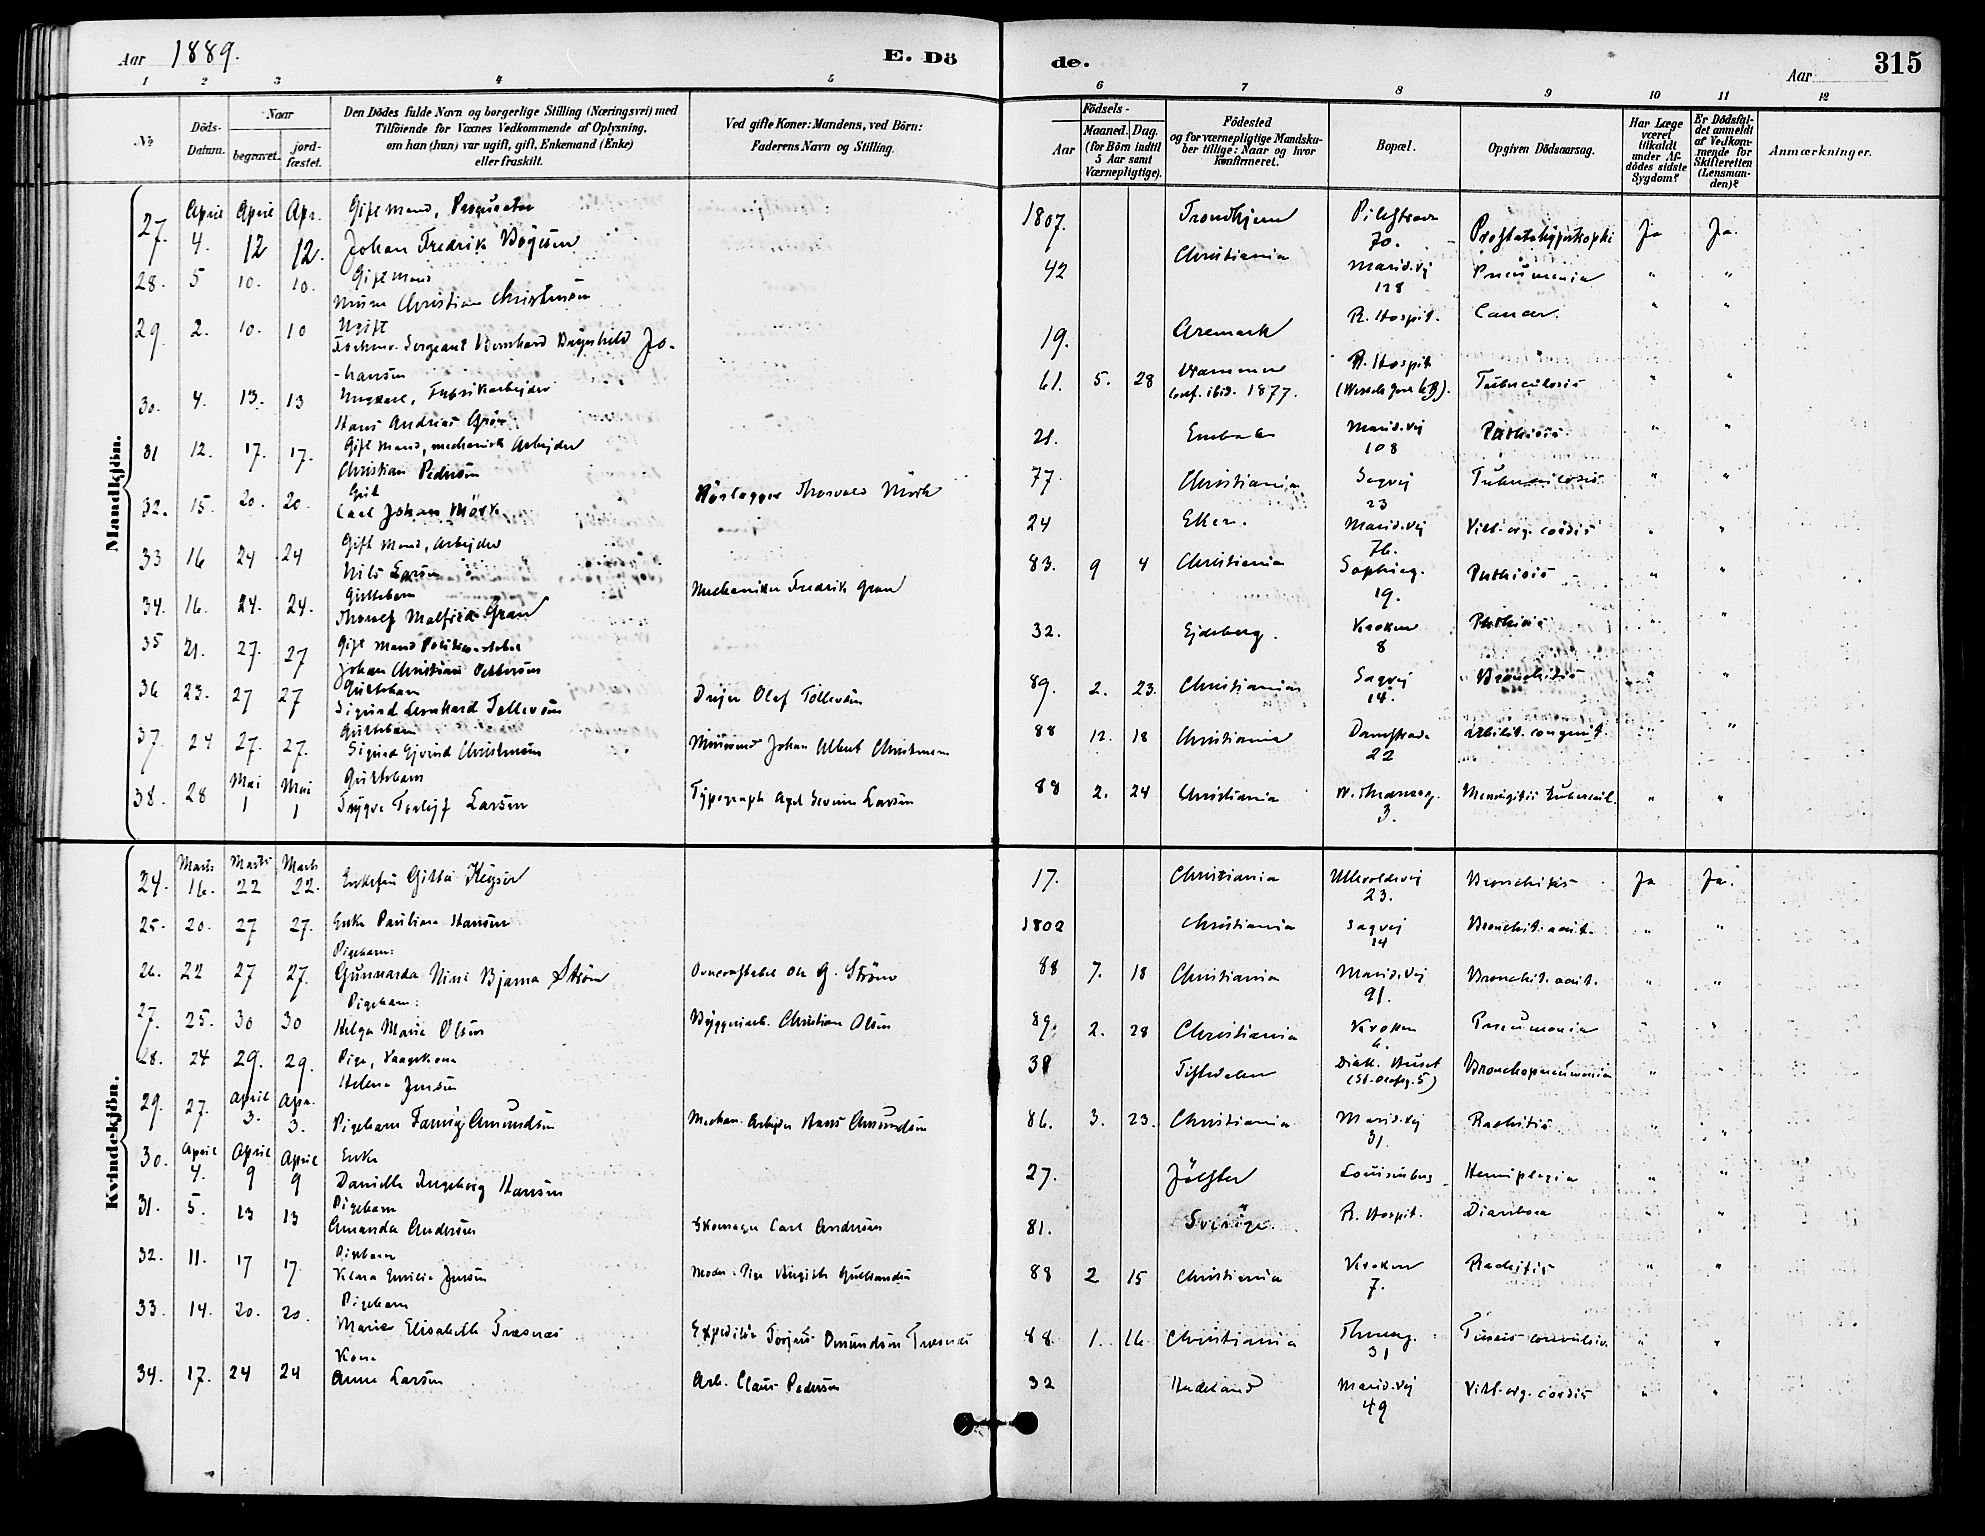 Aar 1889.
E. Dö
de.
Aar
315
1 2 3 4 5
6 7 8 9 10 11 12
No
Döds-Datum.
Naar
begravet.
jord-fæstet.
Den Dödes fulde Navn og borgerlige Stilling (Næringsvei) med
Tilföiende for Voxnes Vedkommende af Oplysning,
om han (hun) var ugift, gift, Enkemand (Enke)
eller fraskilt.
Ved gifte Koner: Mandens, ved Börn:
Faderens Navn og Stilling.
Födsels-
Aar
Maaned. Dag.
(for Börn indtil
5 Aar samt
Værnepligtige).
Födested
og for værnepligtige Mandska-
ber tillige: Naar og hvor
Konfirmeret.
Bopæl.
Opgiven Dödsaarsag.
Har Læge
været
tilkaldt
under Af-
dödes sidste
Sygdom?
Er Dödsfal-
det anmeldt
af Vedkom-
mende for
Skifteretten
(Lensman-
den)?
Anmærkninger.
Mandkjön.
27. April 4. April 12 Apr. 12. Gift Mand, Prokurator
Johan Fredrik 1807. Trondhjem Pilestræde 70. Prostatahypertrophi Ja Ja.
28. 5 10. 10. Gift Mand
Christian Christensen 42 Christiania Marid.vej 128 Pneumonia " "
29. 2. 10. 10 Ugift
Sergeant Bernhard Jo-
-hansen 19. Aremark R. Hospit. Cancer. " "
30. 4. 13. 13 Ungkarl, Fabrikarbejder
Hans Andreas 61. 5. 28 conf. ibid. 1877. R. Hospit " Tuberculosis " "
31 12. 17. 17. Gift Mand, mechanisk Arbejder
Christian Pedersen 21. Enebak Marid.vej 108 Phthisis " "
32. 15. 20. 20. Gut
Carl Johan Mörk Thorvald Mörk 77 Christiania Sagvej 23 Tuberculosis " "
33 16 24 24 Gift Mand, Arbejder
Nils Larsen 24 Eker. Marid.vej 76. Vit. org. cordis " "
34. 16. 24. 24. Guttebarn
Gran Mechaniker Fredrik Gran 83. 9 4 Christiania Sophieg. 19. Phthisis " "
35 21. 27. 27 Gift Mand Politikonstabel
Johan Christian Pettersen 32. Ejdsberg. Kroken 8 Phthisis " "
36 23. 27 27 Guttebarn
Sigurd Lernhard Tollevsen Drejer Olef Tollevsen 89. 2. 23. Christiania Sagvej 14. Bronchitis " "
37. 24 27. 27. Guttebarn
Sigurd Ejvind Christensen Murersvend Johan Albert Christensen 88 12. 18 Christiania Damstræde 22 debilit. congenit. " "
38. 28 Mai 1 Mai 1 Guttebarn
Trygve Torlejf Larsen Typograph Axel Severin Larsen 88 2. 24 Christiania N. 3. Meningitis tubercul. " "
Kvindekjön.
24. Marts 16. Marts 22 Marts 22. Enkefru Gitta Keyser 17. Christiania Ullevoldsvej 23. Bronchitis Ja Ja.
25. 20. 27 27. Enke Pauline Hansen 1802 Christiania Sagvej 14 Bronchit. acut. " "
26. 22 27 27. Pigebarn:
Gunnarda Nini Bjarna Ström Ole G. Ström 88 7. 18 Christiania Marid.vej 91. Bronchit. acut. " "
27. 25. 30 30 Pigebarn:
Helga Marie Olsen Bryggeriarb. Christian Olsen 89. 2. 28 Christiania Kroken 6. Pneumonia " "
28. 24 29. 29. Pige, Vaagekone
Helene Jensen 38 Tistedalen Diak. Huset (St. Olafsg. 5) Bronchopneumonia " "
29. 27. April 3. Apr. 3. Pigebarn Fanny Amundsen Mechan. Arbejder Hans Amundsen 86. 3. 23. Christiania Marid.vej 31. Rachitis " "
30. April 4. April 9 April 9 Enke
Danielle Ingeborg Hansen 27. Jölster Louisenberg Hemiplegia " "
31. 5. 13 13 Pigebarn
Amanda Andersen Skomager Carl Andersen 81. Sverige R. Hospit. Diarrhoea "
32. 11. 17 17 Pigebarn
Klara Emilie Jensen Moder: Pige 88 2 15 Christiania Kroken 7. Rachitis " "
33. 14. 20. 20. Pigebarn
Marie Elisabeth Træsnæs Expeditör Torjus Omundsen Træsnæs 88. 1. 16 Christiania Thereseg. 31 Tussis convulsiv. " "
34. 17. 24 24 Kone
Anne Larsen Arb. Claus Pedersen 32 Hadeland Marid.vej 49 Vit. org. cordis " "